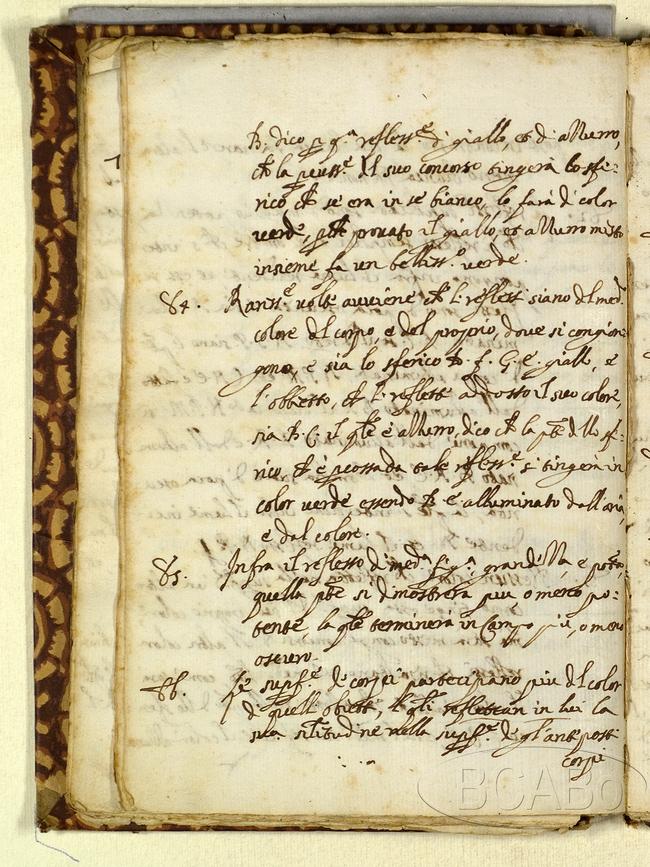 B, dico p q.ª refless.e di giallo, et di azzurro,
ch la peuss.e del suo concorso tingerà lo sfe:
rico ch se era in se bianco, lo farà di color
verde, pch provato il giallo, et azzurro misto
insieme fa un bellis.o verde.
84. Rariss.e volte avviene ch l. refless siano del med.
colore del corpo, e del proprio, dove si congion:
gono, e sia lo sferico D. f. G. e giallo, e
l'obbietto, ch l. reflette addosso il suo colore,
sia B. C. il qle è azzurro, dico ch la pte dello sfe:
rico, ch è pcossa da tale refless.e si tingerà in
color verde essendo B. C alluminato dall'aria,
e dal colore.
85. Infra il reflesso di med.ª fig.ª, grandezza, e poten.
quella pte si dimostrerà più o meno po:
tente, la qle terminerà in Campo più, o meno
oscuro.
86. Le supf.e de corpi partecipano piu del color
di quelli obietti, li qli reflettan in lui la
sua similitudine nella supf.e de gl'anteposti
corpi
BCABo